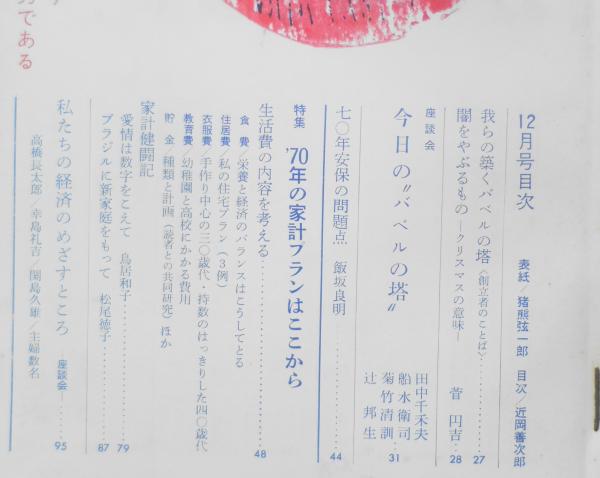 である
12月号目次
表紙／猪熊弦一郎 目次／近岡善次郎
我らの築くバベルの塔〈創立者のことば〉……27
闇をやぶるもの―クリスマスの意味― 菅 円吉……28
座談会
今日の〝バベルの塔〟
田中千禾夫
船水衛司
菊竹清訓
辻 邦生……31
七〇年安保の問題点 飯坂良明……44
特集 '70年の家計プランはここから
生活費の内容を考える……48
食 費／栄養と経済のバランスはこうしてとる
住居費／私の住宅プラン（3例）
衣服費／手作り中心の三〇歳代・持数のはっきりした四〇歳代
教育費／幼稚園と高校にかかる費用
貯 金／種類と計画（読者との共同研究）ほか
家計健闘記
愛情は数字をこえて 鳥居和子……79
ブラジルに新家庭をもって 松尾徳子……87
私たちの経済のめざすところ―座談会―……95
高橋長太郎／幸島礼吉／関島久雄／主婦数名